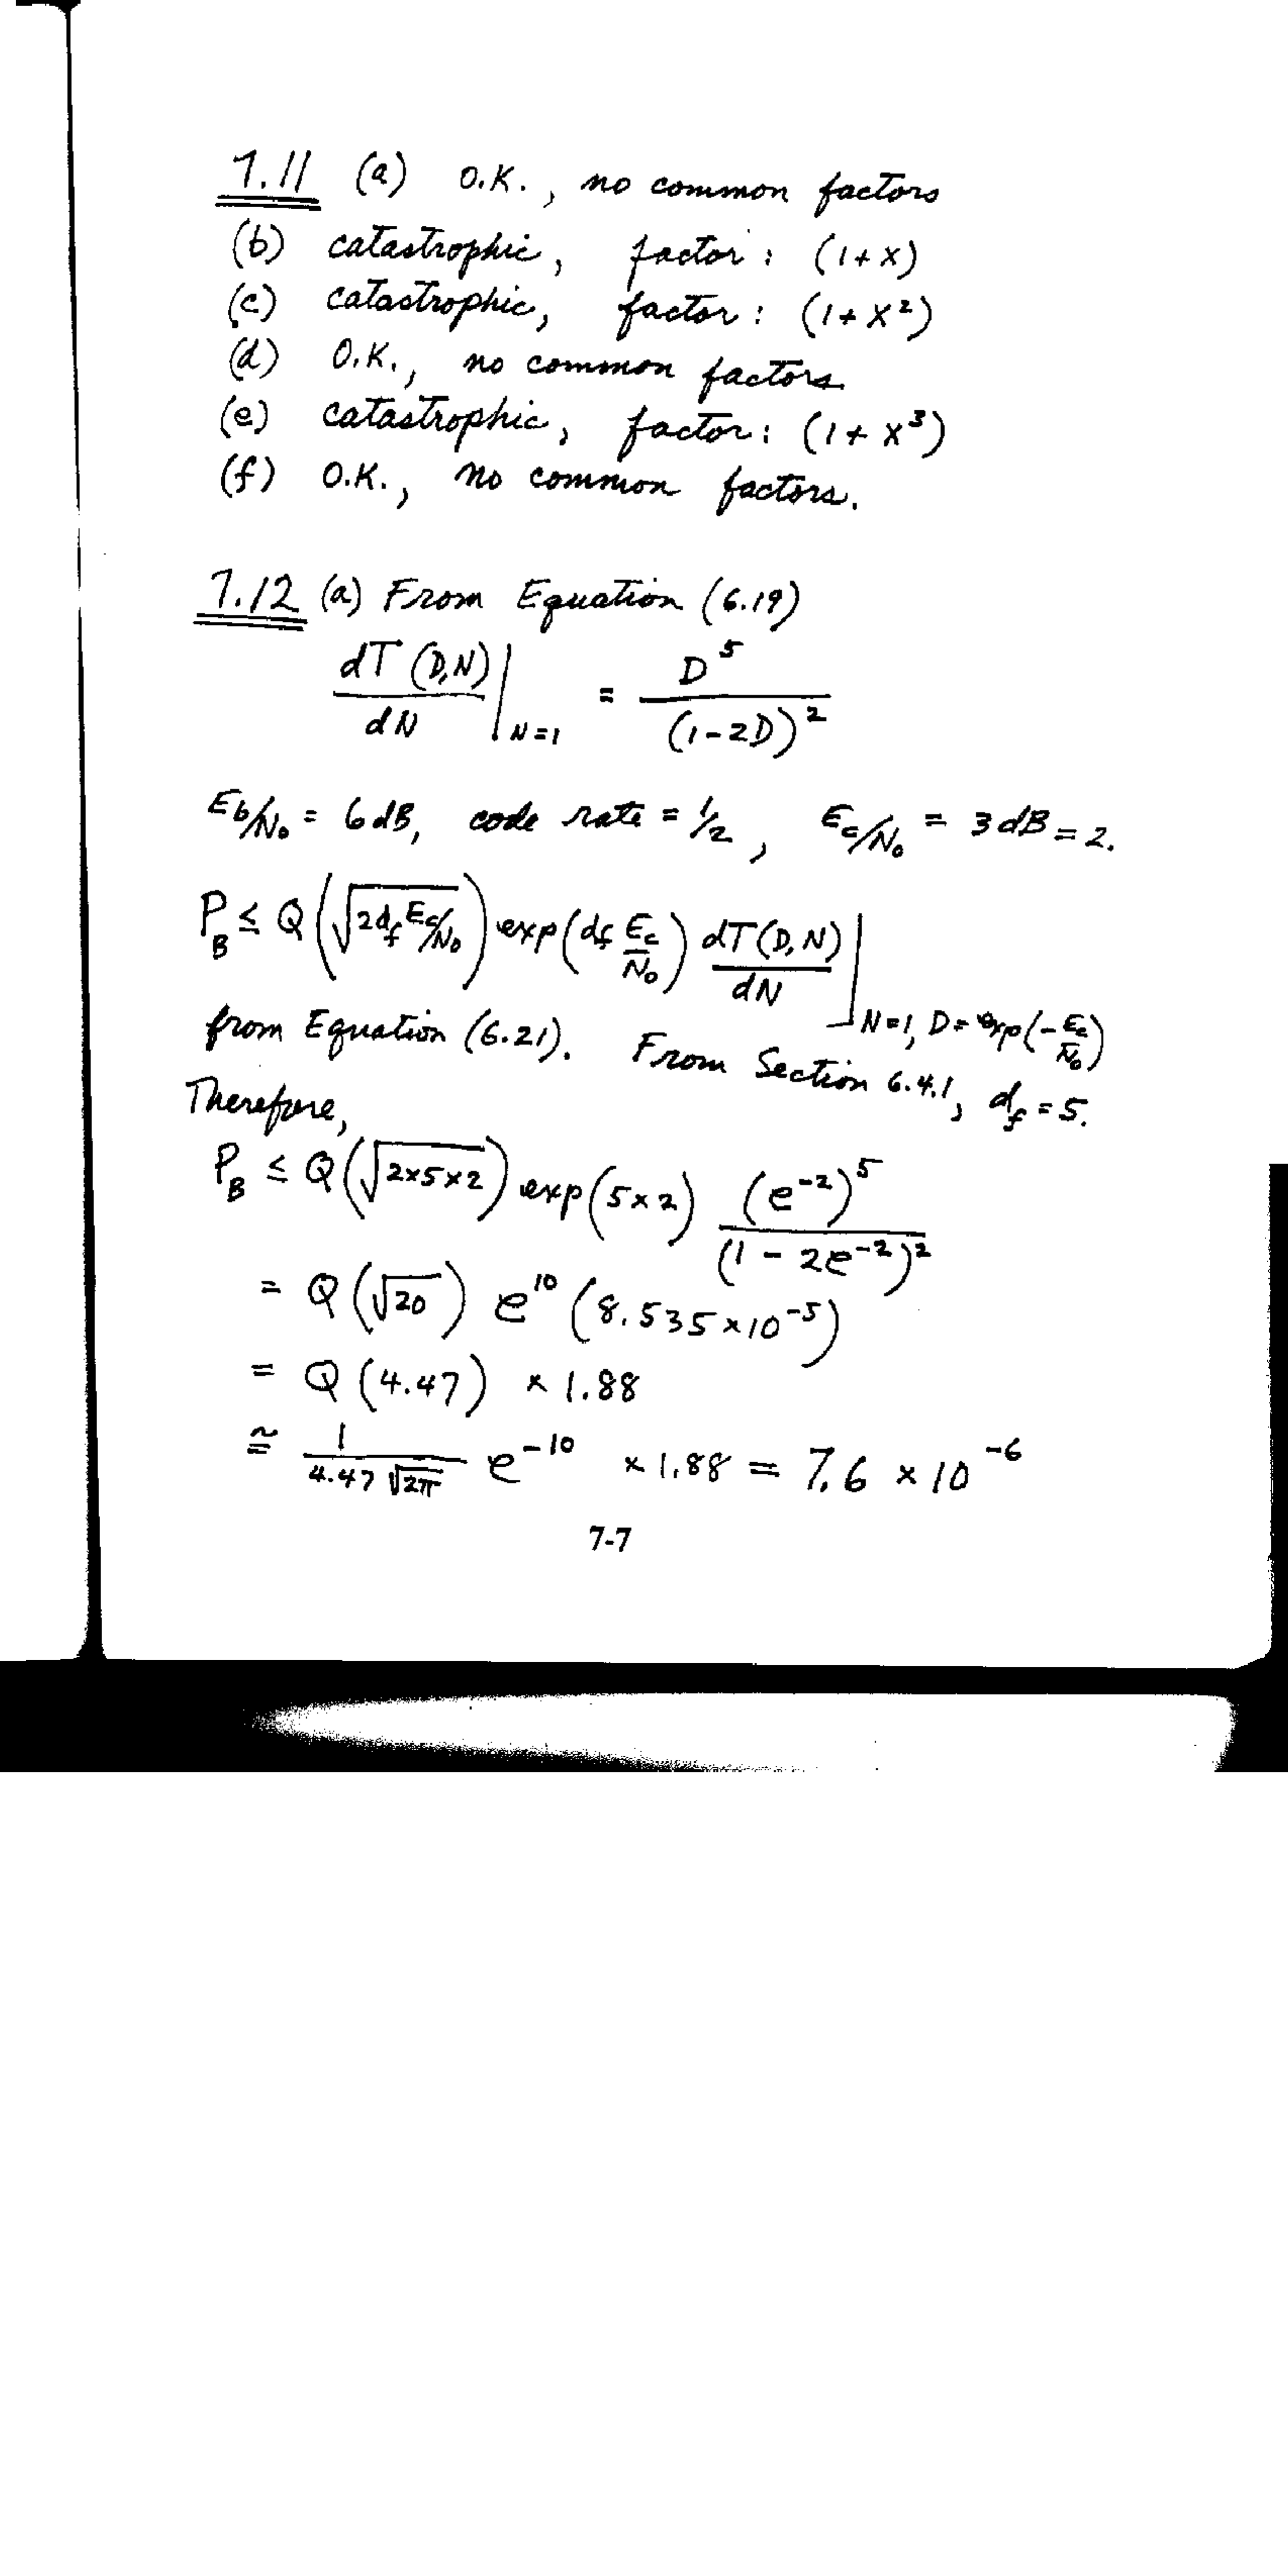 7.11 (a) O.K., no common factors
(b) catastrophic, factor: (1+X)
(c) catastrophic, factor: (1+X²)
(d) O.K., no common factors.
(e) catastrophic, factor: (1+X³)
(f) O.K., no common factors.
7.12 (a) From Equation (6.19)
dT(D,N)/dN |N=1 = D⁵/(1-2D)²
Eb/N₀ = 6dB, code rate = 1/2, Ec/N₀ = 3dB = 2.
P_B ≤ Q(√(2d_f Ec/N₀)) exp(d_f Ec/N₀) dT(D,N)/dN |N=1, D=exp(-Ec/N₀)
from Equation (6.21). From Section 6.4.1, d_f = 5.
Therefore,
P_B ≤ Q(√(2×5×2)) exp(5×2) (e⁻²)⁵/(1-2e⁻²)²
= Q(√20) e¹⁰ (8.535×10⁻⁵)
= Q(4.47) × 1.88
≅ 1/(4.47√(2π)) e⁻¹⁰ × 1.88 = 7.6 × 10⁻⁶
7-7